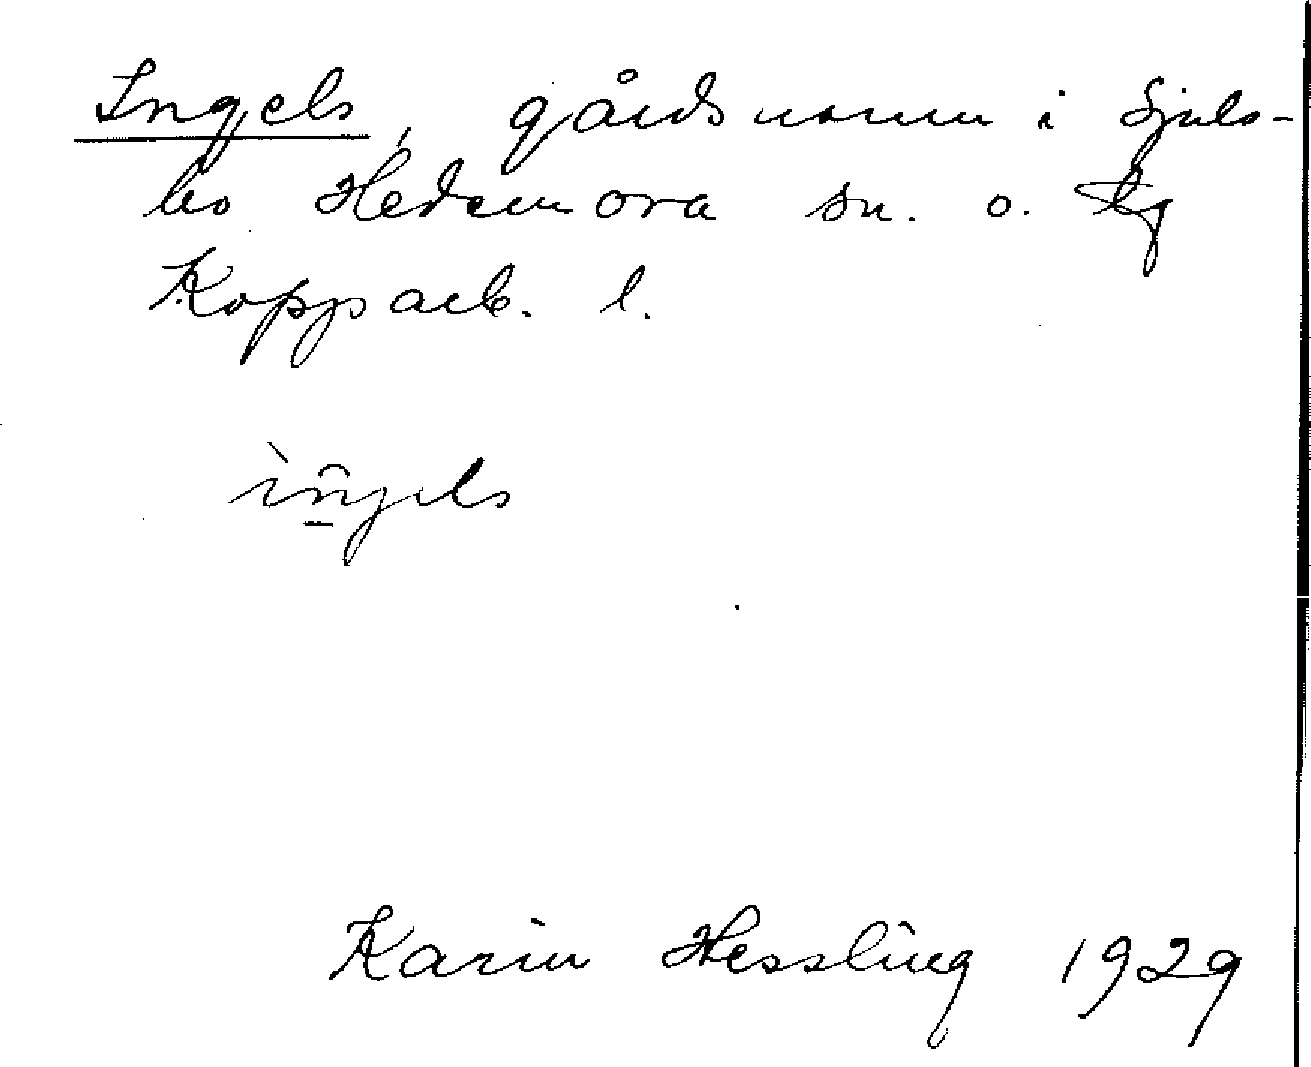 Ingels, gårdsnamn i Sjuls-
bo Hedemora sn. o. tg
Kopparb. l.
ingels
Karin Hessling 1929